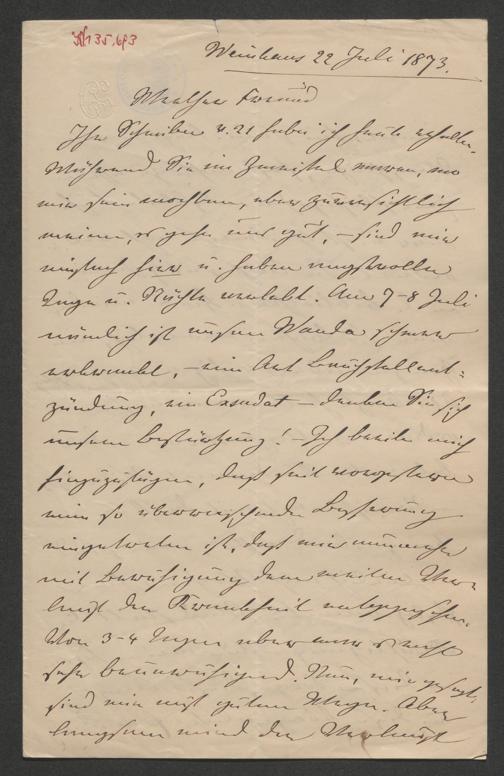 H 135.693
Weinhaus 22 Juli 1873.
Werther Freund
Ihr Schreiben v. 21 habe ich heute erhalten.
Während Sie im Zweifel waren, wo
wir sein mochten, aber zuversichtlich
meinen, es gehe uns gut, – sind wir
einfach hier u. haben angstvolle
Tage u. Nächte verlebt. Am 7–8 Juli
nämlich ist unsere Wanda schwer
erkrankt, – eine Art Bauchfellent-
zündung, ein Exsudat – denken Sie sich
unsere Bestürzung! – Ich beeile mich
hinzuzufügen, daß seit vorgestern
eine so überraschende Besserung
eingetreten ist, daß wir nunmehr
mit Beruhigung dem weiteren Ver-
lauf der Krankheit entgegensehen.
Vor 3–4 Tagen aber war es noch
sehr beunruhigend. Nun, wie gesagt,
sind wir auf gutem Wege. Aber
langsam wird der Verlauf